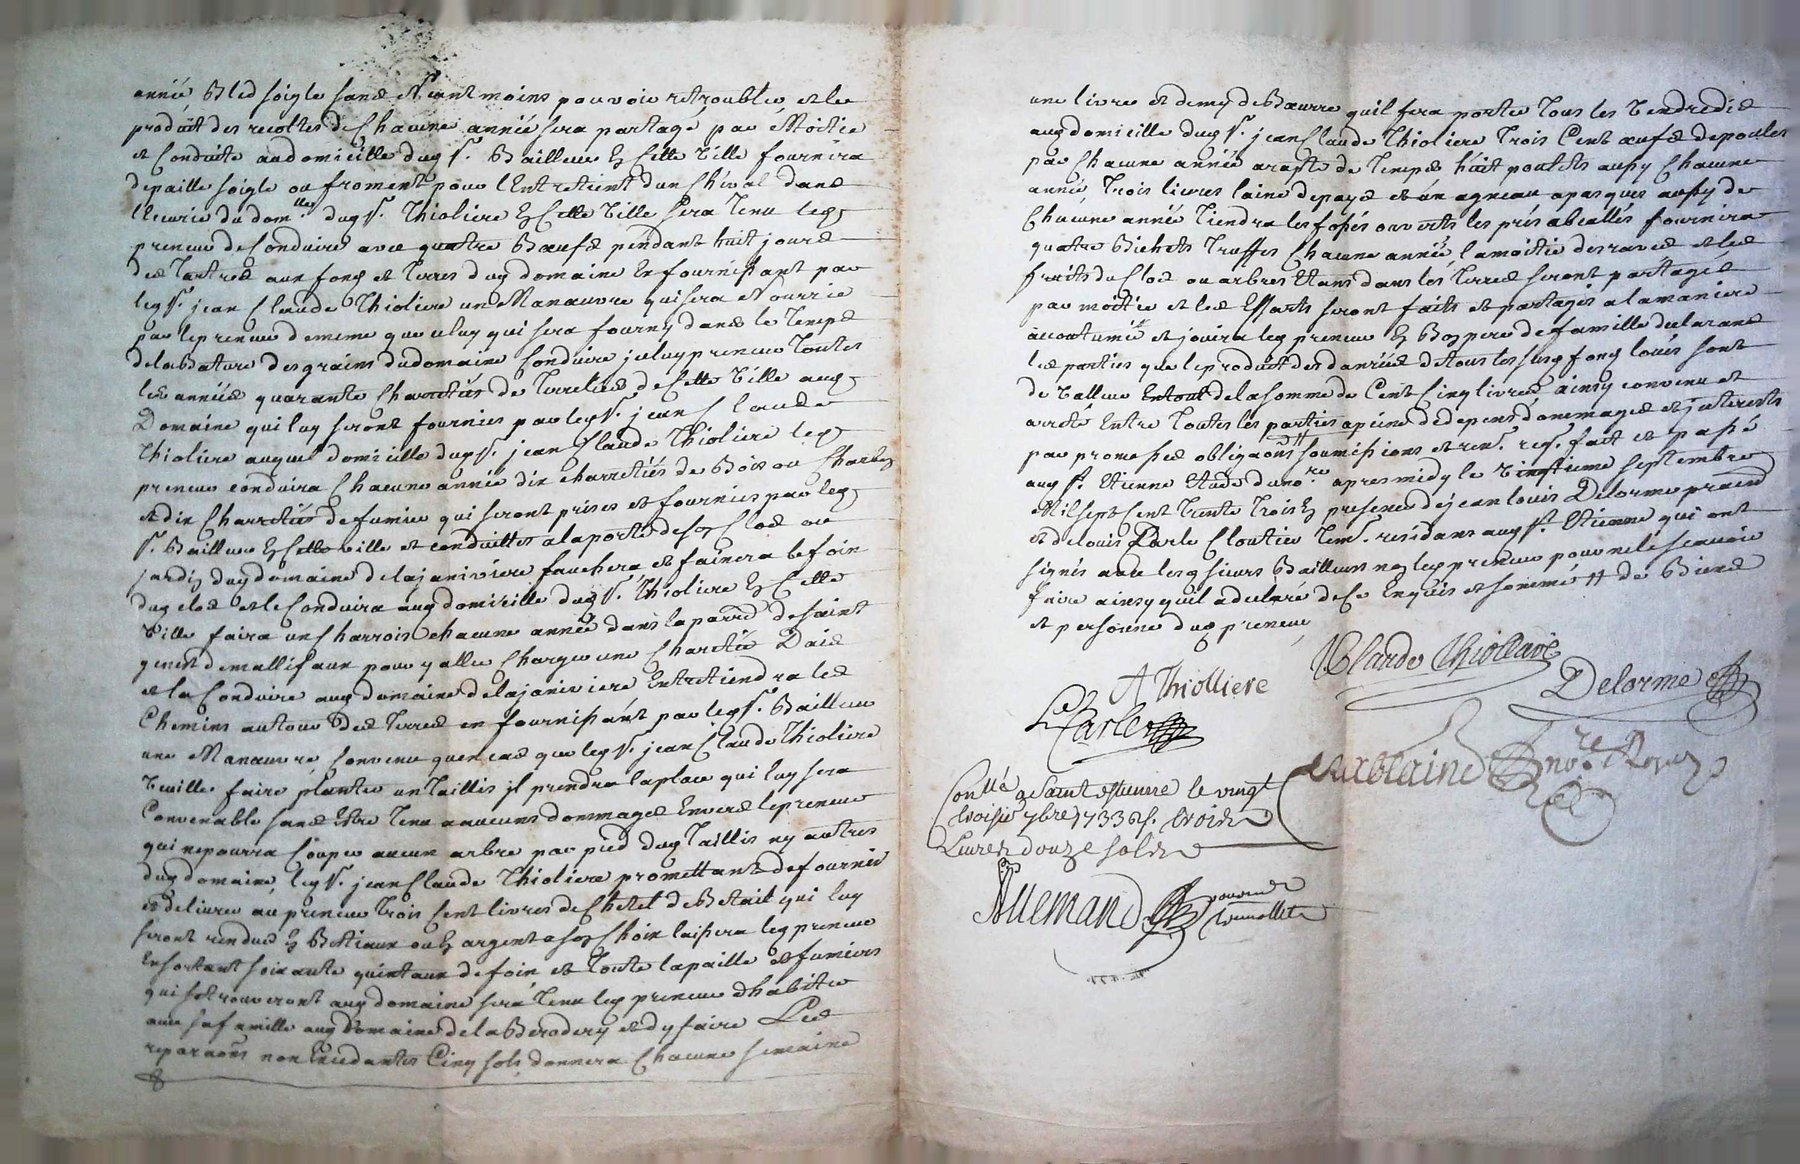 année Bled soigle sans Neantmoins pouvoir retroubler et le
produit des recoltes de Chacune année sera partagé par Moitie
et Conduite au domicille dud sr. Bailleur en Cette Ville fournira
de paille soigle ou froment pour l'Entretient d'un Cheval dans
l'Ecurie du domlle. dud sr. Thioliere en Cette Ville sera tenu led
preneur de Conduire avec quatre Bœufs pendant huit jours
des au fond et terres dud domaine En fournissant par
led sr. jean Claude Thioliere un Manœuvre qui sera Nourrie
par le preneur de meme que celuy qui sera fourny dans le Temps
de la Bature des grains du domaine Conduira iceluy preneur Toutes
les années quarante Charretées de Terreties de Cette Ville aud
Domaine qui luy seront fournies par led sr. jean Claude
Thioliere auquel domicille dud sr. jean Claude Thioliere led
preneur conduira Chacune année dix charretées de Bois ou Charbon
et dix Charretées de fumier qui seront prises et fournies par led
sr. Bailleur en Cette ville et conduittes a la porte de son Clos ou
jardin dud domaine de la janiviere fauchera et fainera le foin
dud clos et le Conduira aud domicille dud sr. Thioliere en Cette
Ville faira un Charrois chacune année dans la parr. de saint
genest de mallifaux pour y aller Charger une Charetée Dais
et la Conduire aud domaine de la janiviere Entretiendra les
Chemins autour des Terres en fournissant par led sr. Bailleur
une Manœuvre, Convenu qu'en cas que led sr. jean Claude Thioliere
Veuille faire planter un taillis il prendra la place qui luy sera
Convenable sans Estre Tenu a aucuns dommages Envers le preneur
qui ne pourra Couper aucun arbre par pied dud Taillis ny autres
dud domaine, led sr. jean Claude Thioliere promettant de fournir
et delivrer au preneur Trois Cent livres de Chetel de Betail qui luy
seront rendues en Betiaux ou en argent a son Choix laissera led preneur
En sortant soixante quintaux de foin et Toute la paille et fumiers
qui se trouveront aud domaine sera Tenu led preneur d'habiter
avec sa famille aud Domaine de la Berodery et d'y faire Les
reparaons non Excedantes Cinq sols, donnera Chacune semaine
une livre et demy de Beurre qu'il fera porter Tous les Vendredis
aud domicille dud sr. jean Claude Thioliere Trois Cent œufs de poules
par Chacune année a rapte de Temps huit poulets aussy Chacune
année, Trois livres laine de pays et un agneau a pasques aussy de
Chacune année Tiendra les fossés ouverts les prés abeallés fournira
quatre Bichets Truffes Chacune année, la moitie des raves et les
fruits du Clos ou arbres Etans dans les Terres seront partagés
par moitie et les Essarts seront faits et partagés a la maniere
accoutumée et jouira led preneur En Bon pere de famille declarans
les parties que le produit des danrées de tous les susd fond loués sont
de Valleur Entout de la somme de Cent Cinq livres ainsy convenu et
arreté Entre Toutes les parties a peine de depens dommages et jnterests
par promesses obligaons # soumissions et ren. req. fait et passé
aud st. Etienne Etude du nore. apres midy le Vingtieme septembre
Mil sept Cent Trente Trois En presence de jean louis Delorme praend
et de louis Carle Cloutier Tem. residans aud st. Etienne qui ont
signés avec lesd sieurs Bailleurs non led preneur pour ne le scavoir
faire ainsy qu'il a declaré de ce Enquis et sommé # de Biens
et personne dud preneur
JClaude Thiolliere
A Thiolliere
Delorme
L Carle
Chaxblaine nore. Royal
Conllé a Saint estienne le vingt
troisie 7bre 1733 trois
Livres douze sols
Allemand